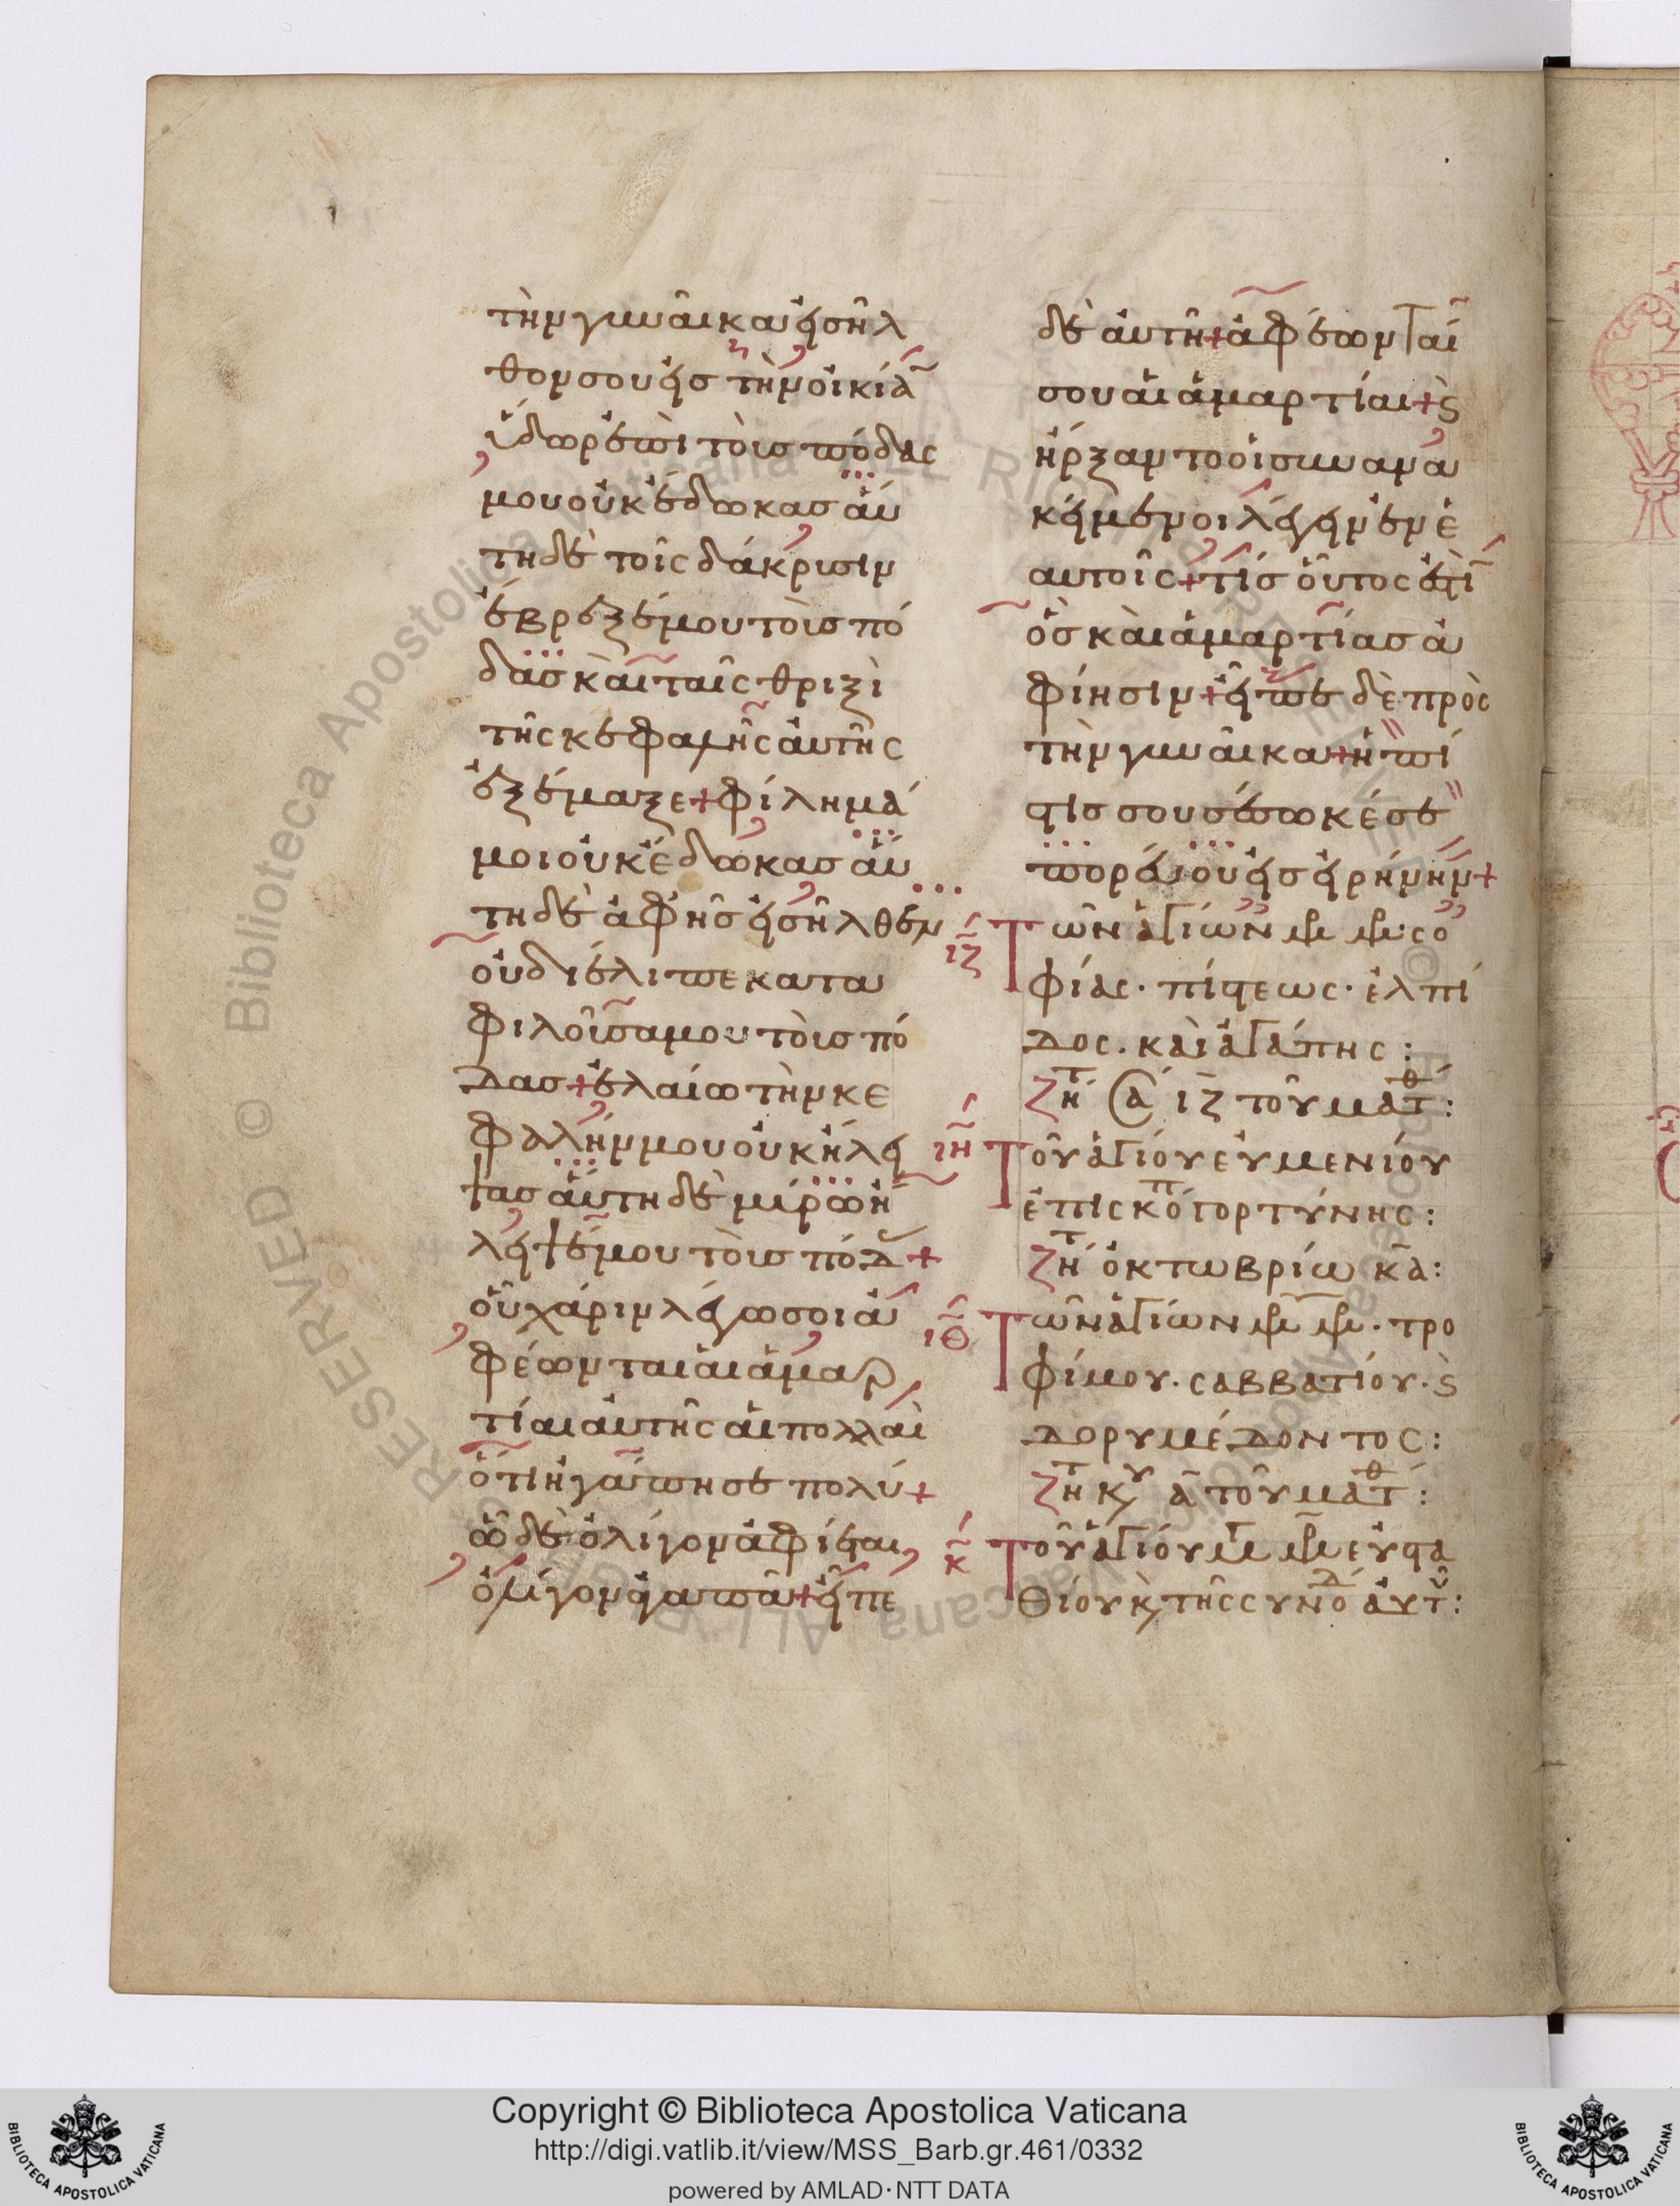 τὴν γυναῖκα εἰσῆλ
θον σου εἰς τὴν οἰκίαν
ὕδωρ ἐπὶ τοὺς πόδας
μου οὐκ ἔδωκας αὕ
τη δὲ τοῖς δάκρυσιν
ἔβρεξέ μου τοὺς πό
δας καὶ ταῖς θριξὶ
τῆς κεφαλῆς αὐτῆς
ἐξέμαξε + φίλημά
μοι οὐκ ἔδωκας αὕ
τη δὲ ἀφ ἧς εἰσῆλθεν
οὐ διέλιπε κατα
φιλοῦσα μου τοὺς πό
δας + ἐλαίω τὴν κε
φαλήν μου οὐκ ἤλει
ψας αὕτη δὲ μύρω ἤ
λειψέ μου τοὺς πόδ +
οὗ χάριν λέγω σοι ἀ
φέωνται αἱ ἁμαρ
τίαι αὐτῆς αἱ πολλαὶ
ὅτι ἠγάπησε πολύ +
ὧ δὲ ὀλίγον ἀφίεται
ὀλίγον ἀγαπᾶ + εἶπε
δὲ αὐτῆ + ἀφέωνταί
σου αἱ ἁμαρτίαι + ϗ
ἤρξαντο οἱ συνανα
κείμενοι λέγειν ἐν ἑ
αυτοῖς + τίς οὗτος ἐστὶν
ὃς καὶ ἁμαρτίας ἀ
φίησιν + εἶπε δὲ πρὸς
τὴν γυναῖκα + ἡ πί
στις σου σέσωκέ σε
πορεύου εἰς εἰρήνην +
ιζ Τῶν ἁγίων μρ μρ· σο
φίας· πίστεως· ἐλπί
δος. καὶ ἀγάπης :
ζητ Σα ιζ τοῦ ματθ :
ιη Τοῦ ἁγίου εὐμενίου
ἐπισκοπ γορτύνης :
ζητ ὀκτωβρίω κα :
ιθ Τῶν ἁγίων μρ μρ. τρο
φίμου. σαββατίου. ϗ
δορυμέδοντος :
ζητ Κυ α τοῦ ματθ :
κ Τοῦ ἁγίου μγ μρ εὐστα
θίου ϗ τῆς συνοδ αὐτ :
Copyright © Biblioteca Apostolica Vaticana
http://digi.vatlib.it/view/MSS_Barb.gr.461/0332
powered by AMLAD·NTT DATA